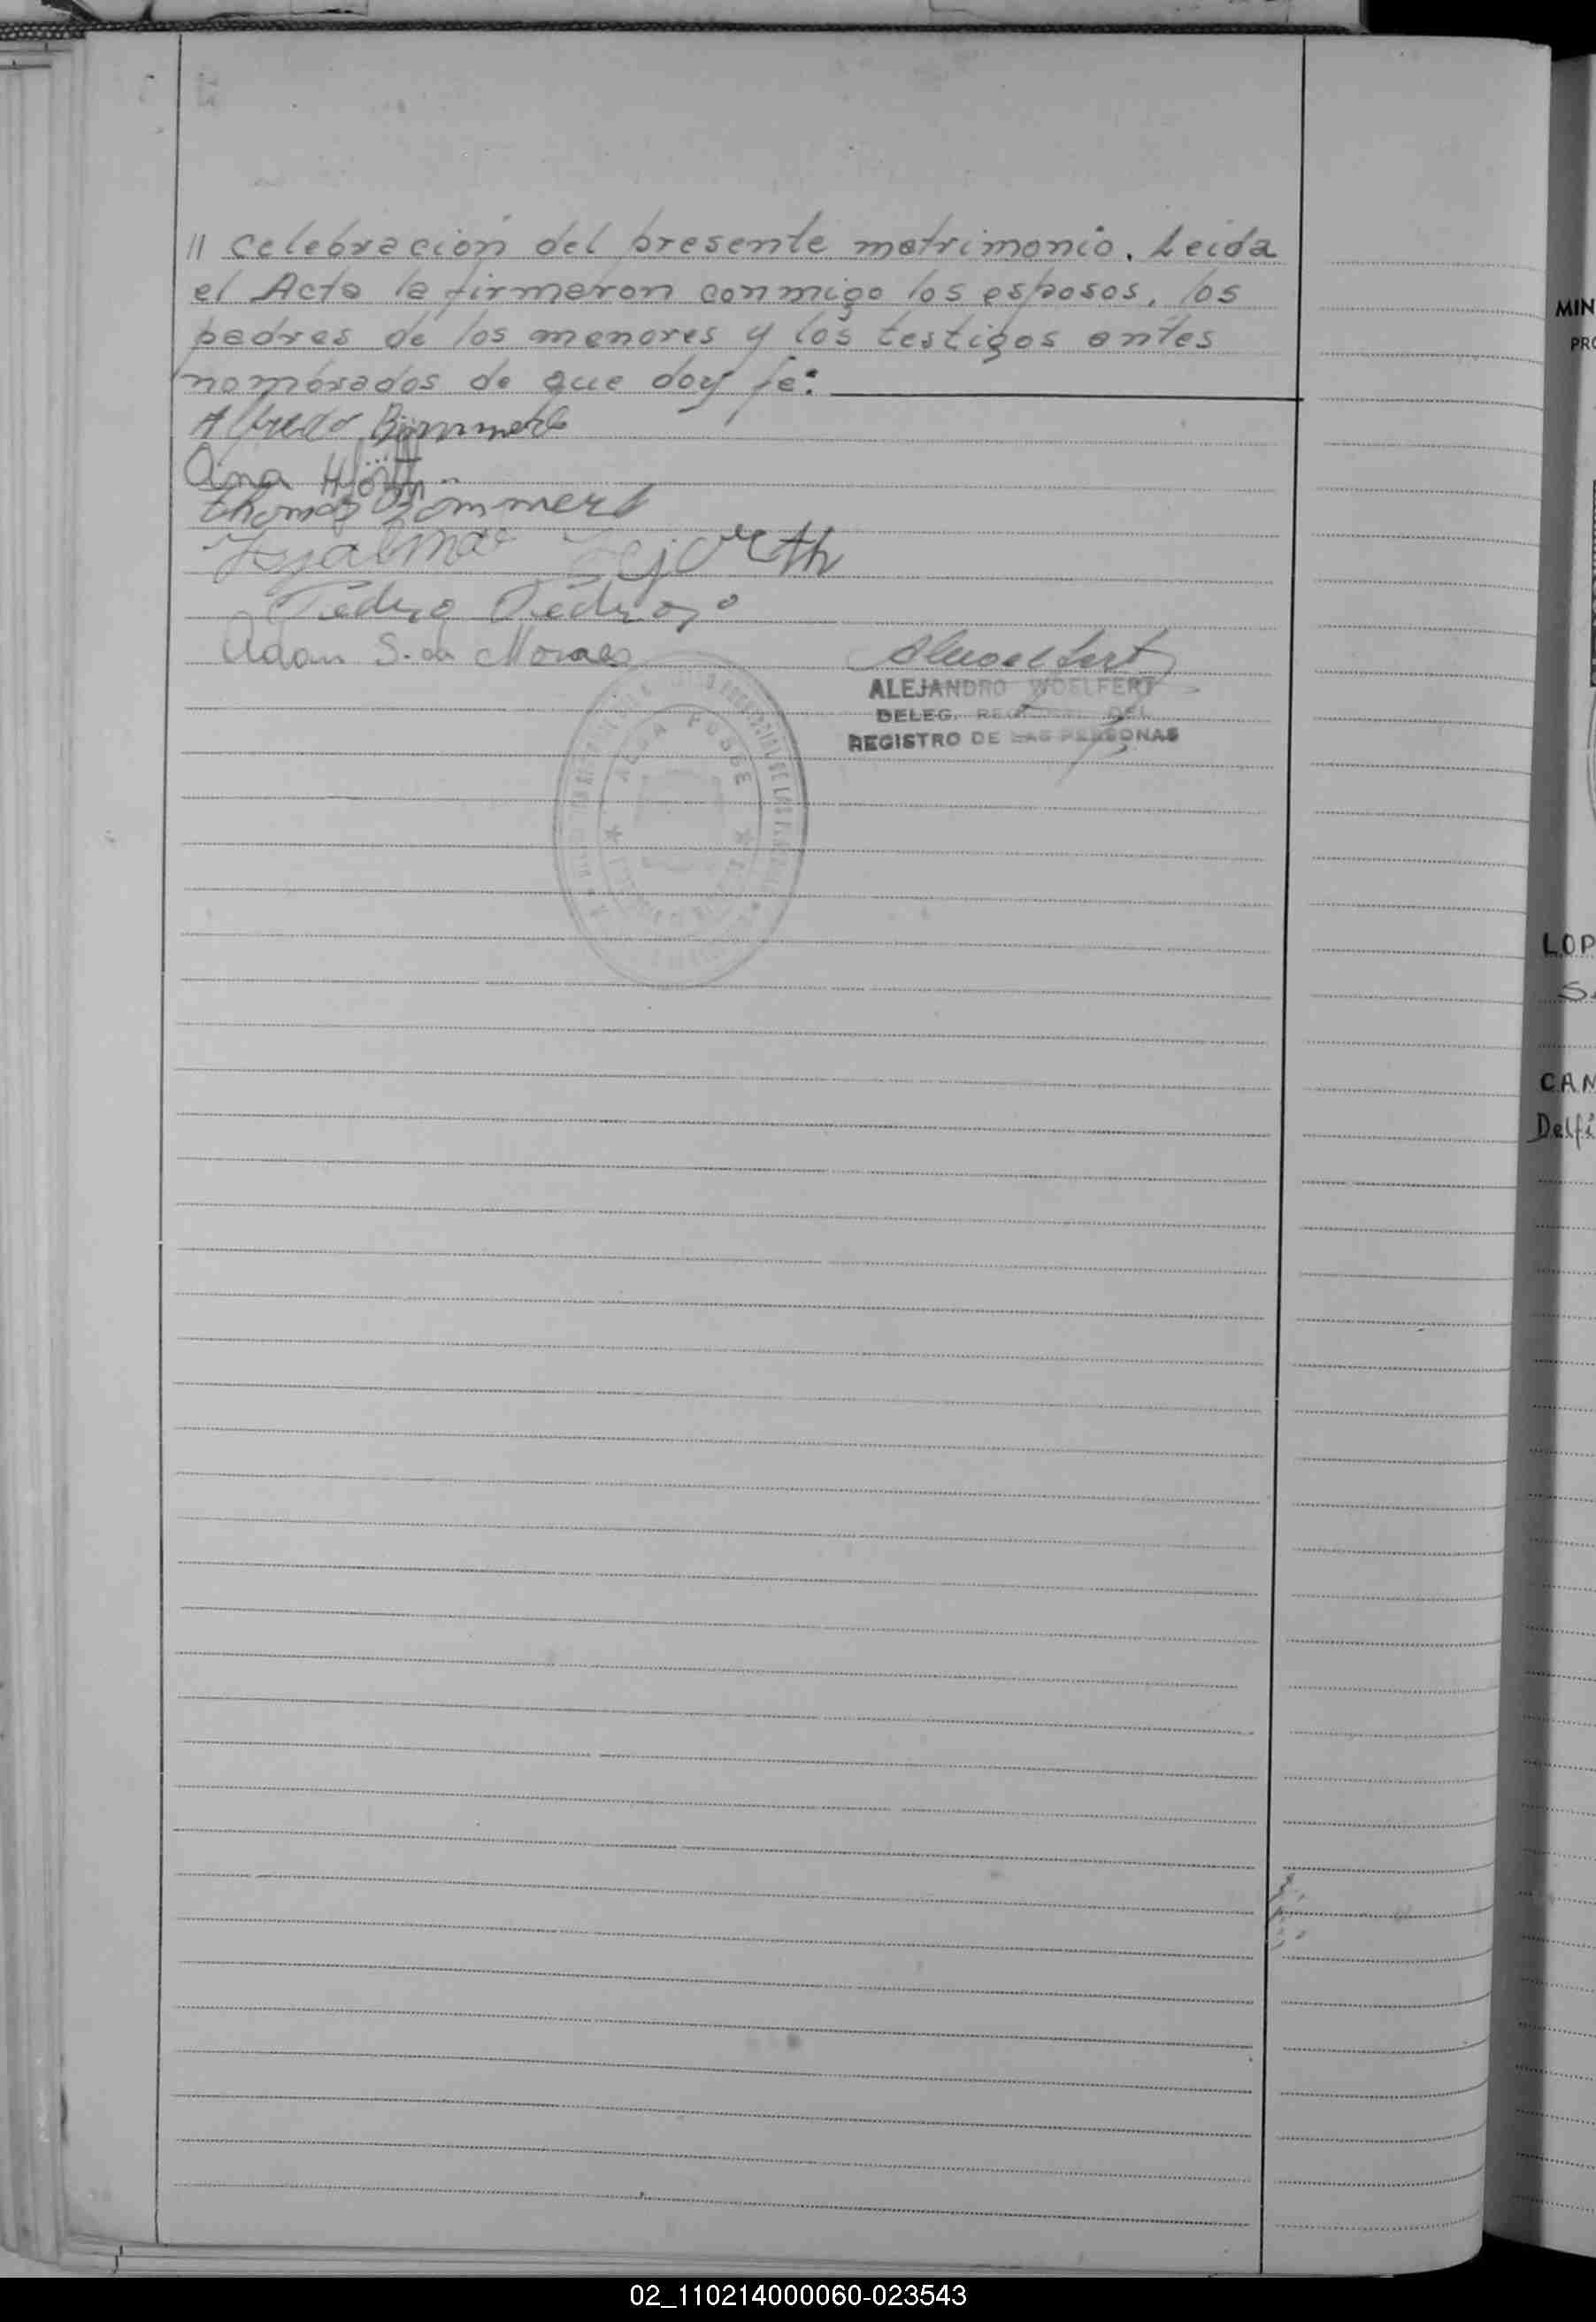 // celebración del presente matrimonio. Leida
el Acta la firmaron conmigo los esposos, los
padres de los menores y los testigos antes
nombrados de que doy fe:
Alfredo Bömmert
Ana Hjörth
Thomas Bömmert
Hjalmar Hjorth
Pedro Pedrozo
Adan S. da Moraes
ALEJANDRO WOELFERT
DELEG. REGIONAL DEL
REGISTRO DE LAS PERSONAS
ALBA POSSE
MIN
PRO
LOP
S
CAN
Delfi
02_110214000060-023543